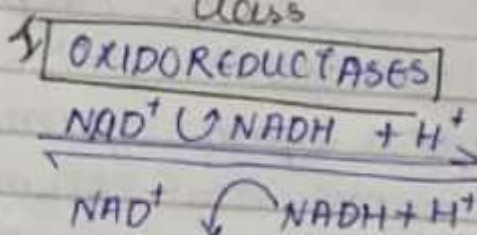 Class
1 OXIDOREDUCTASES
NAD⁺ NADH + H⁺
NAD⁺ NADH + H⁺